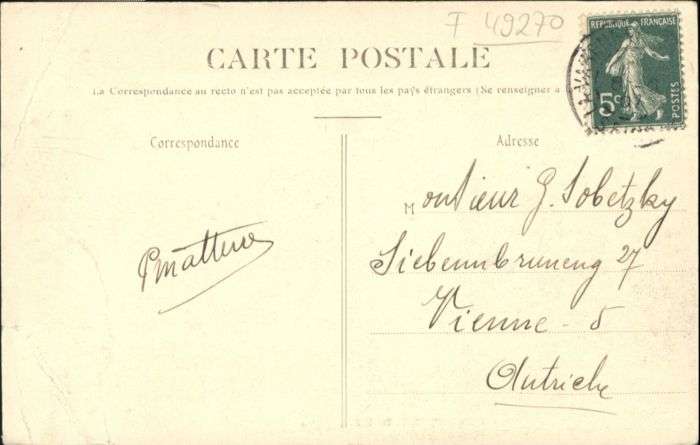 F 49270
RÉPUBLIQUE FRANÇAISE
5c
POSTES
CARTE POSTALE
La Correspondance au recto n'est pas acceptée par tous les pays étrangers (Se renseigner a
Correspondance
Adresse
Monsieur G. Sobetzky
Siebenbruneng 27
Vienne - 5
Autriche